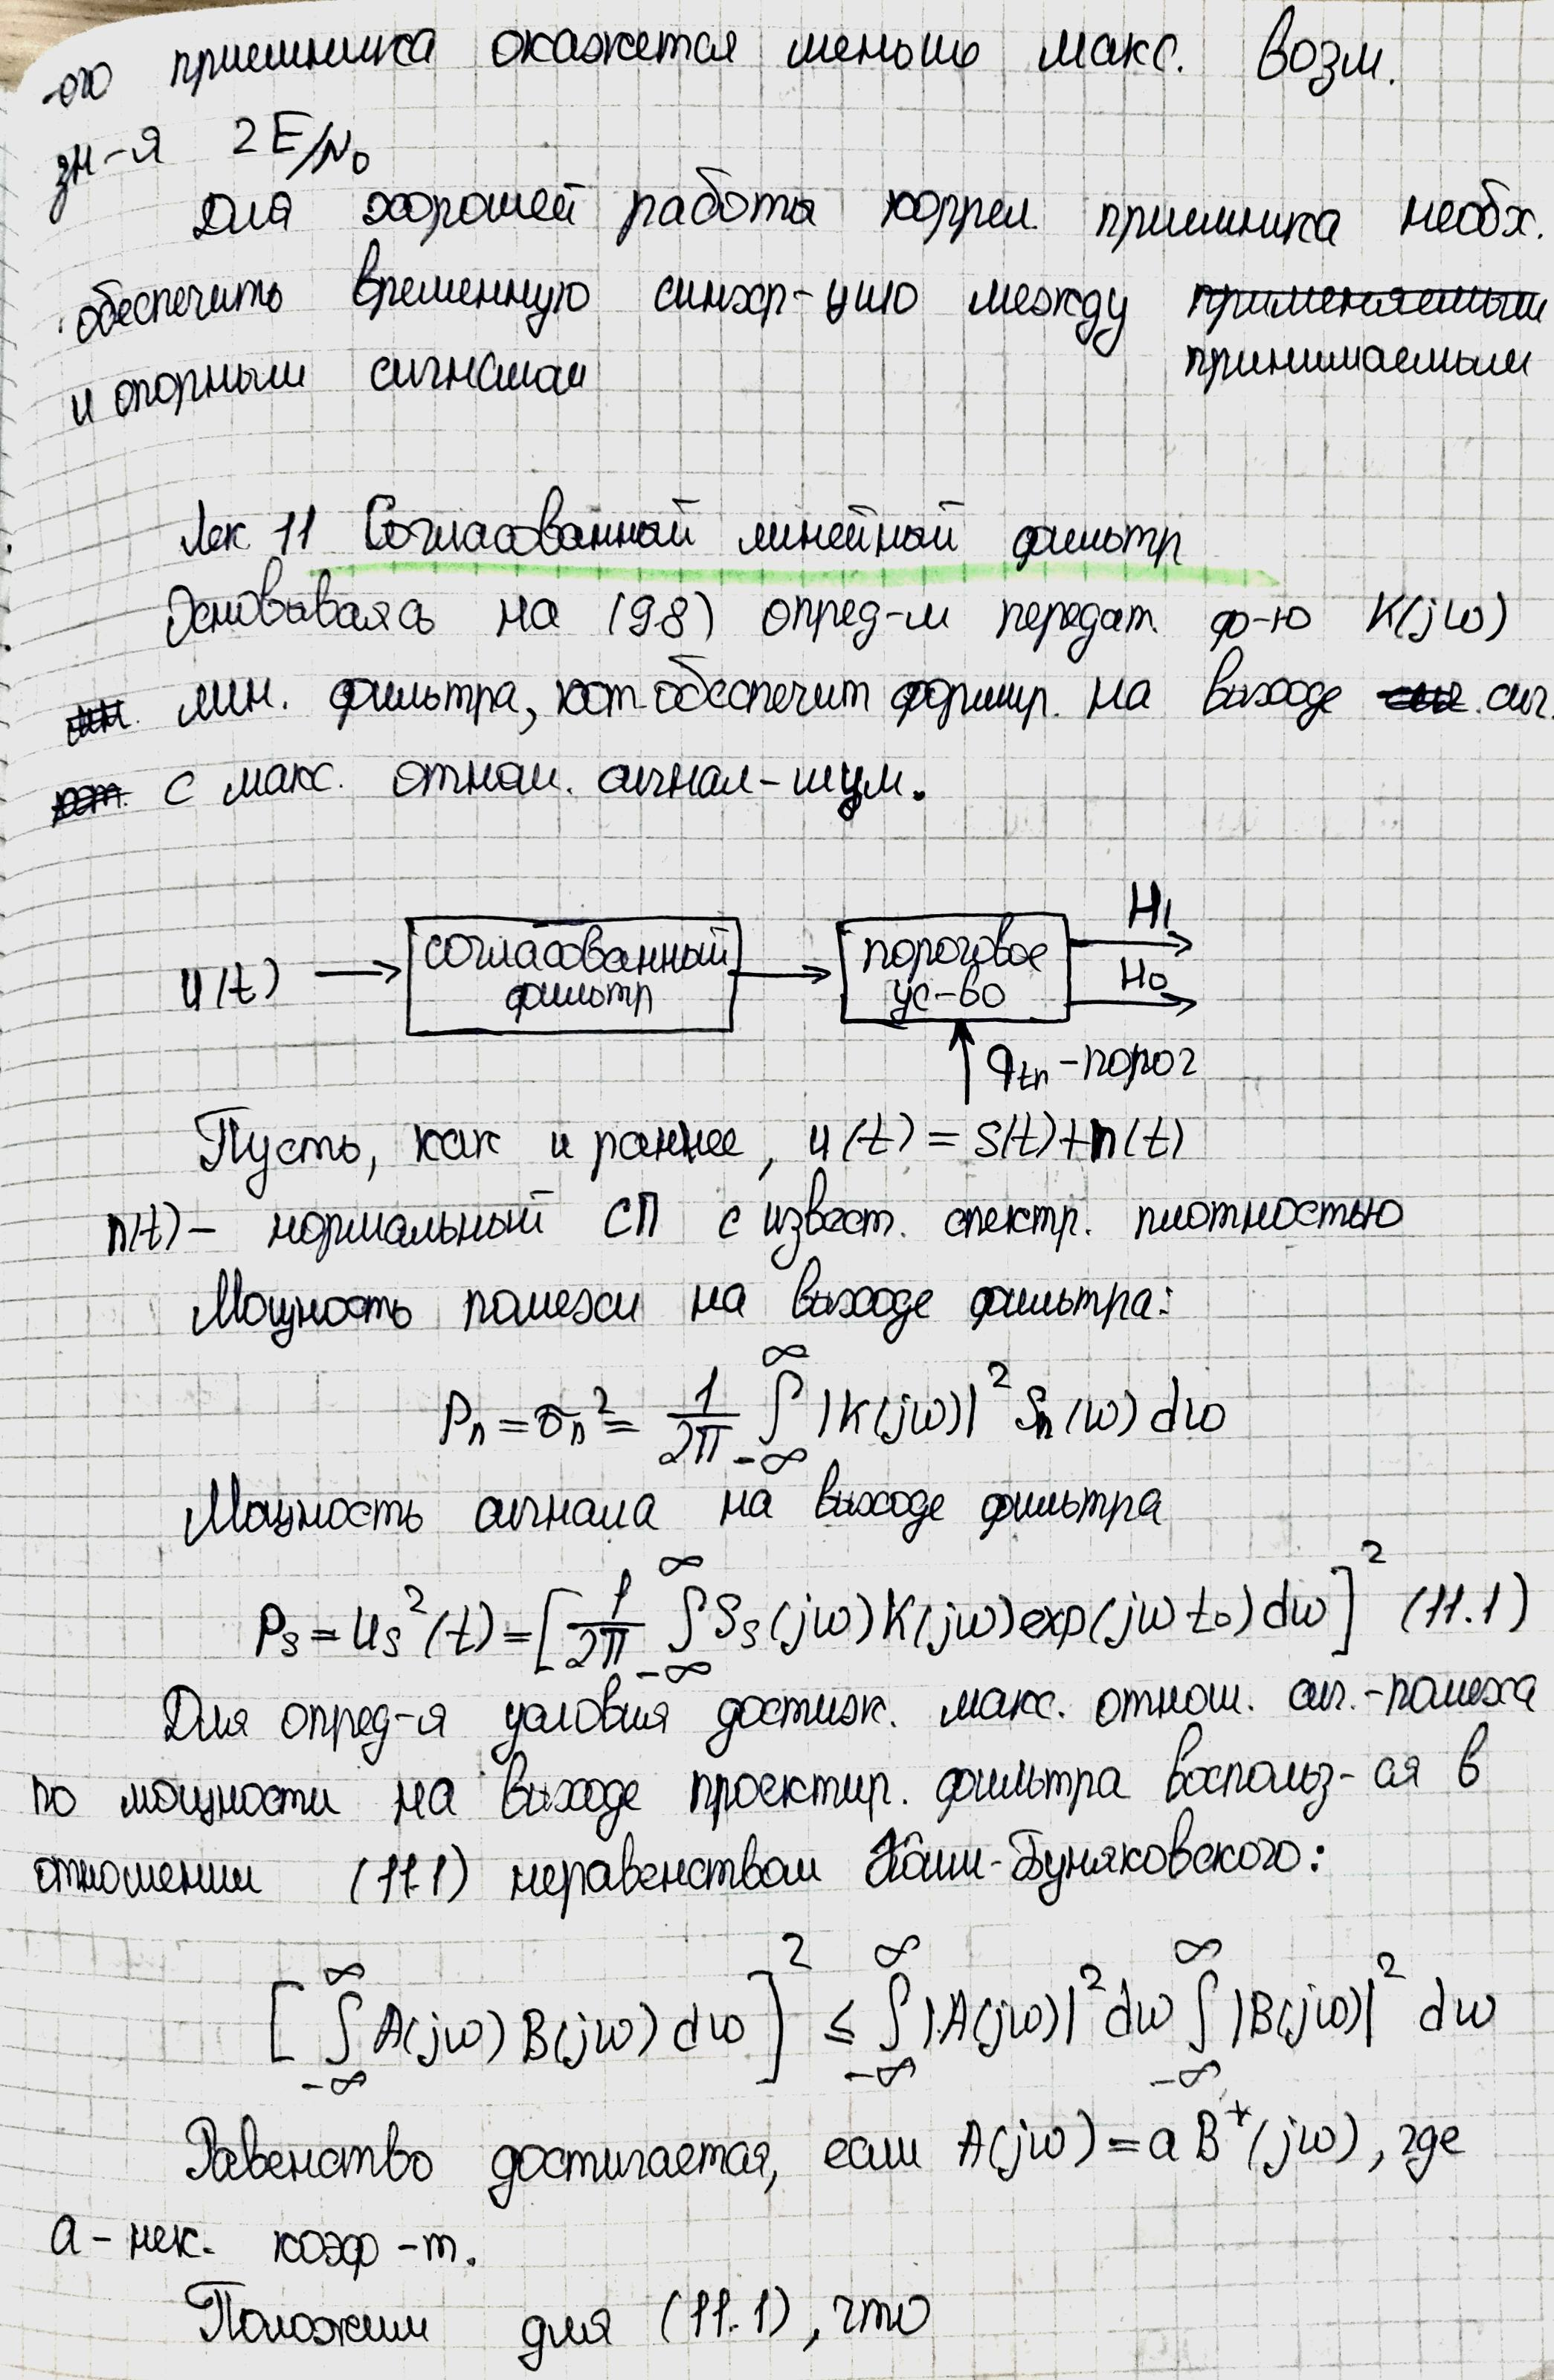 -ого приемника окажется меньше макс. возм.
зн-я 2E/N₀
Для хорошей работы коррел. приемника необх.
обеспечить временную синхр-цию между применяемым
и опорным сигналом принимаемым
Лек 11 Согласованный линейный фильтр
Основываясь на (9.8) опред-м передат. ф-ю K(jω)
лин. лин. фильтра, кот. обеспечит формир. на выходе сиг. сиг.
кот. с макс. отнош. сигнал-шум.
u(t) → согласованный фильтр → пороговое ус-во H₁ H₀
q_tn - порог
Пусть, как и раннее, u(t) = s(t)+n(t)
n(t) - нормальный СП с извест. спектр. плотностью
Мощность помехи на выходе фильтра:
Pₙ = σₙ² = 1/2π ∫_{-∞}^{∞} |K(jω)|² Sₙ(ω) dω
Мощность сигнала на выходе фильтра
P_s = u_s²(t) = [1/2π ∫_{-∞}^{∞} S_s(jω) K(jω) exp(jωt₀) dω]² (11.1)
Для опред-я условия достиж. макс. отнош. сиг.-помеха
по мощности на выходе проектир. фильтра воспольз-ся в
отношении (11.1) неравенством Коши-Буняковского:
[∫_{-∞}^{∞} A(jω) B(jω) dω]² ≤ ∫_{-∞}^{∞} |A(jω)|² dω ∫_{-∞}^{∞} |B(jω)|² dω
Равенство достигается, если A(jω) = a B*(jω), где
a - нек. коэф-т.
Положим для (11.1), что